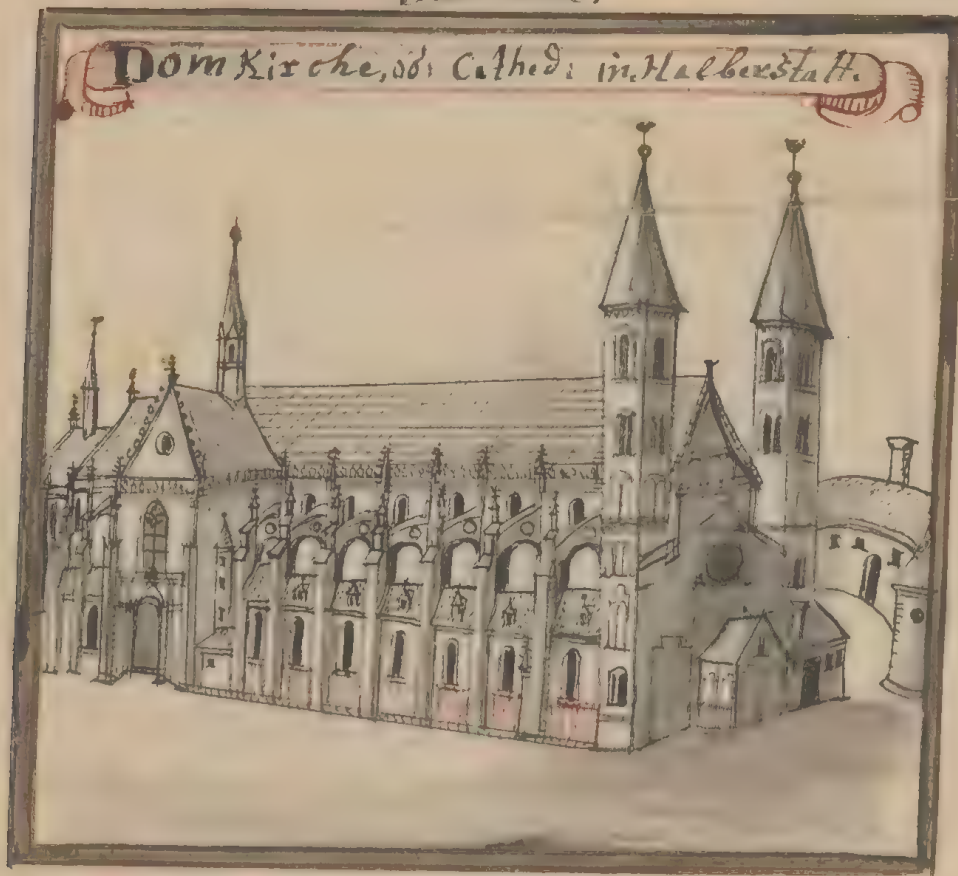 Dom Kirche, od: Cathed: in Halberstatt.